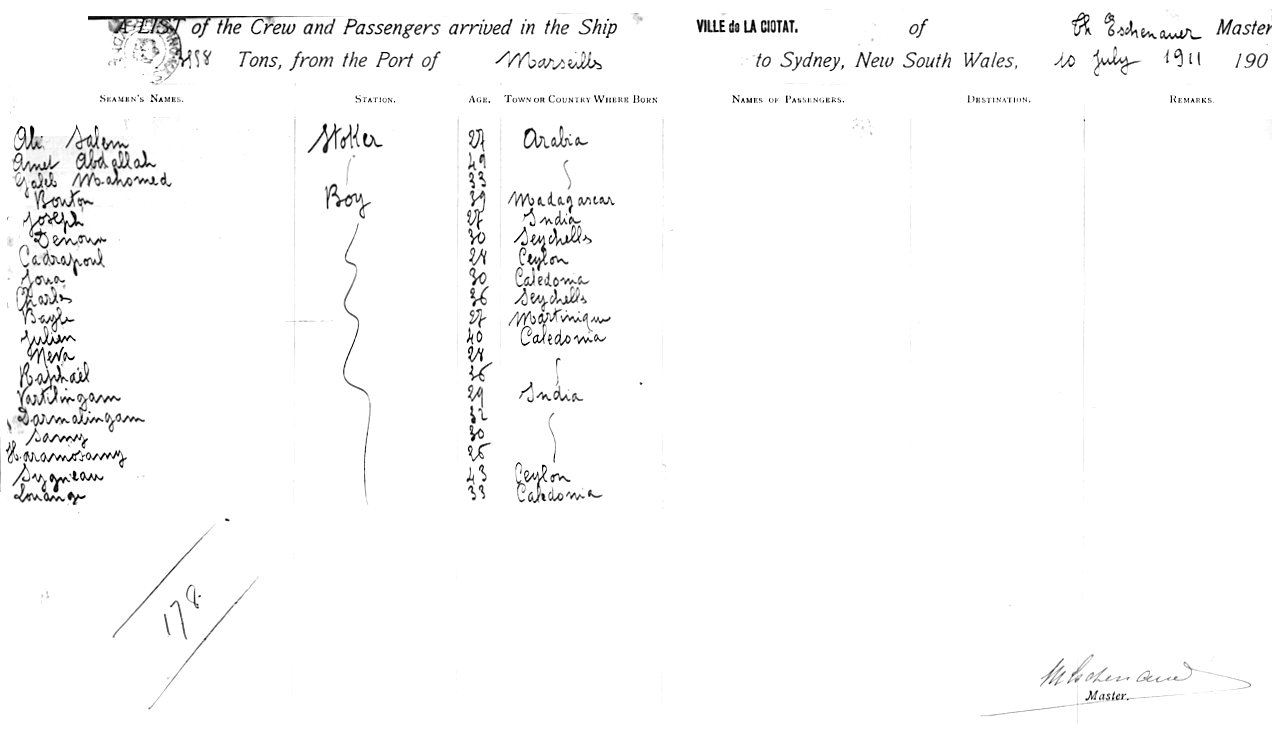 A LIST of the Crew and Passengers arrived in the Ship VILLE de LA CIOTAT. of Ch Eschenauer Master
Tons, from the Port of Marseilles to Sydney, New South Wales, 10 July 1911 190
SEAMEN'S NAMES. STATION. AGE. TOWN OR COUNTRY WHERE BORN NAMES OF PASSENGERS. DESTINATION. REMARKS.
Ali Salem Stoker 27 Arabia
Amet Abdallah 49
Galeb Mahomed 33
Bouton Boy 39 Madagascar
Joseph 27 India
Denoun 30 Seychells
Cadrapoul 28 Ceylon
Joua 30 Caledonia
Charles 36 Seychells
Bayle 27 Martinique
Julien 40 Caledonia
Meva 28
Raphaël 36
Vartilingam 29 India
Darmalingam 32
Samy 30
Haramosamy 26
Sygneau 43 Ceylon
Louange 33 Caledonia
178
M Eschenauer
Master.